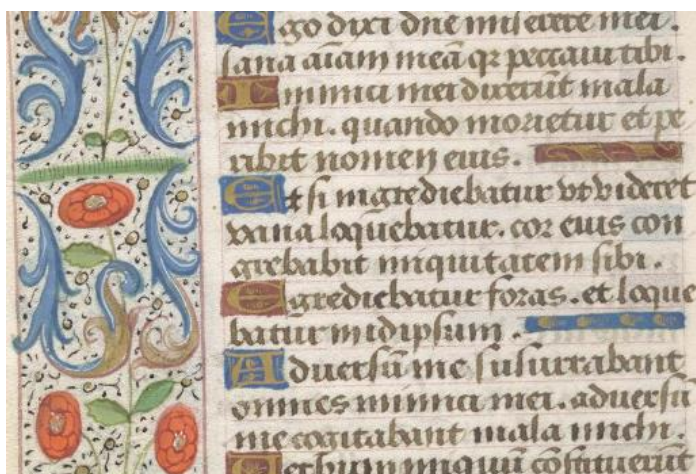 Ego dixi dñe miserere mei.
sana aīam meā qz peccaui tibi.
Inimici mei dixerūt mala
michi. quando morietur et pe
ribit nomen eius.
Et si ingrediebatur vt videret
vana loq̄uebatur. cor eius con
grebabit iniquitatem sibi.
Egrediebatur foras. et loque
batur in idipsum.
Aduersū me susurrabant
omnes inimici mei. aduersū
me cogitabant mala michi.
Uerbum iniquū cōstituerūt